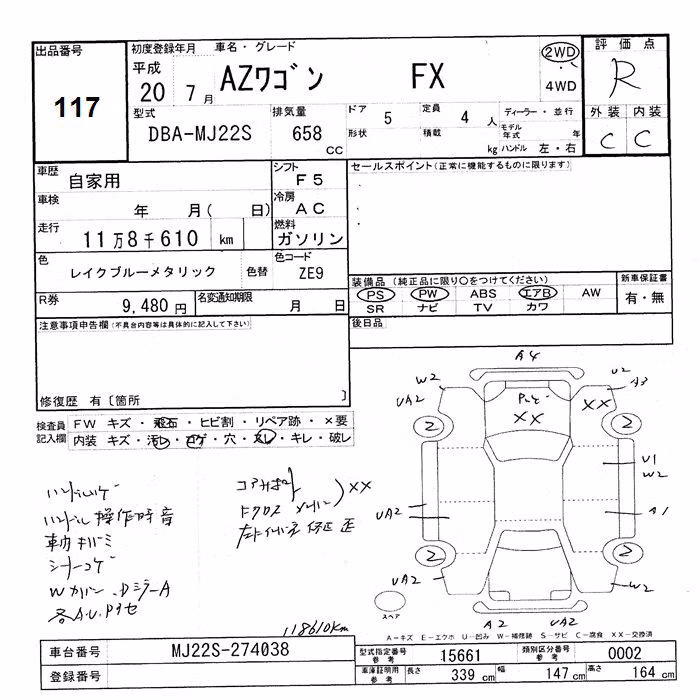 出品番号
117
初度登録年月 車名・グレード
平成 20 7月 AZワゴン FX
2WD
・
4WD
評価点
R
外装 内装
C C
型式
DBA-MJ22S
排気量
658 CC
ドア 5
形状
定員 4 人
積載 kg
ディーラー・並行
モデル年式 年
ハンドル 左・右
車歴
自家用
シフト
F5
車検
年 月( 日)
冷房
AC
走行
11万8千610 km
燃料
ガソリン
色
レイクブルーメタリック
色替
色コード
ZE9
R券
9,480円
名変通知期限
月 日
セールスポイント(正常に機能するものに限ります)
装備品 (純正品に限り○をつけてください)
PS PW ABS エアB AW
SR ナビ TV カワ
新車保証書
有・無
後日品
注意事項申告欄(不具合内容等は具体的に記入して下さい)
修復歴 有〔箇所 〕
検査員記入欄
FW キズ・飛石・ヒビ割・リペア跡・×要
内装 キズ・汚レ・コゲ・穴・スレ・キレ・破レ
ハンドル操作時音
シートコゲ
XX
118610km
A4
W2
UA2
U2
A3
XX
XX
2
2
U1
W2
UA2
A1
2
2
UA2
W2
スペア
A2 UA2
A-キズ E-エクボ U-凹み W-補修跡 S-サビ C-腐食 XX-交換済
車台番号
MJ22S-274038
登録番号
型式指定番号
参考
15661
類別区分番号
参考
0002
車庫証明用
参考
長さ 339 cm
幅 147 cm
高さ 164 cm